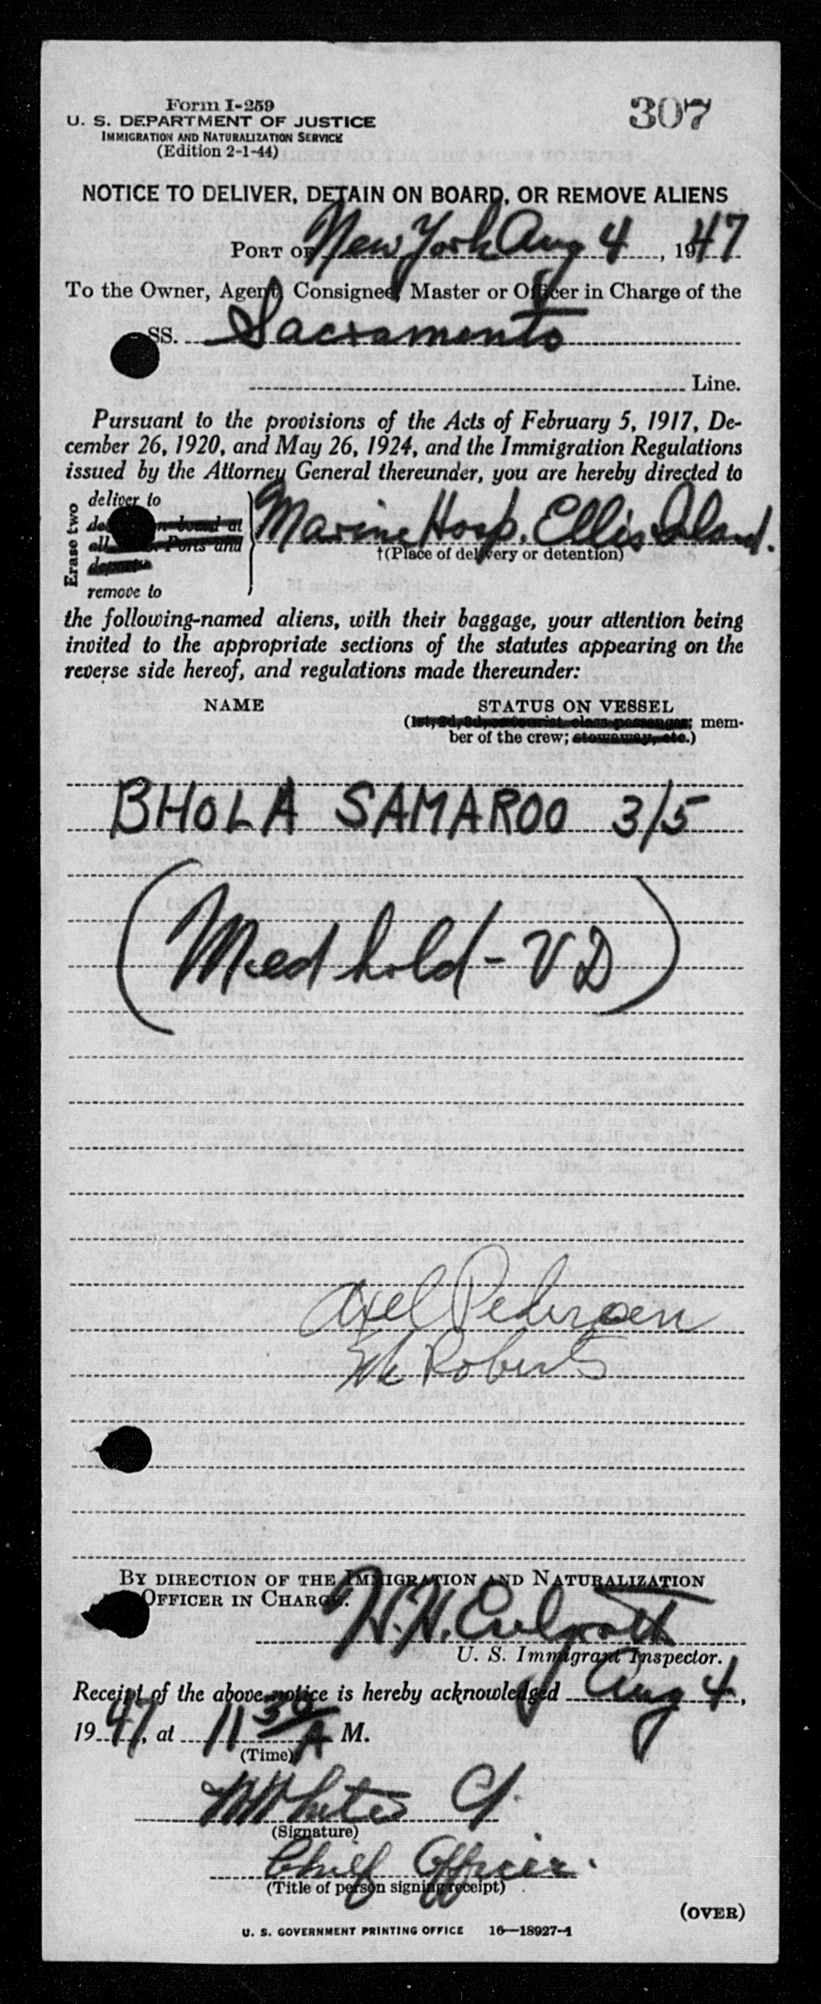 Form I-259
U. S. DEPARTMENT OF JUSTICE
IMMIGRATION AND NATURALIZATION SERVICE
(Edition 2-1-44)
307
NOTICE TO DELIVER, DETAIN ON BOARD, OR REMOVE ALIENS
PORT OF New York Aug 4, 1947
To the Owner, Agent, Consignee, Master or Officer in Charge of the
SS. Sacramento
Line.
Pursuant to the provisions of the Acts of February 5, 1917, De-
cember 26, 1920, and May 26, 1924, and the Immigration Regulations
issued by the Attorney General thereunder, you are hereby directed to
Erase two
deliver to
on board at
all Ports and
depart
remove to
Marine Hosp. Ellis Island.
†(Place of delivery or detention)
the following-named aliens, with their baggage, your attention being
invited to the appropriate sections of the statutes appearing on the
reverse side hereof, and regulations made thereunder:
NAME STATUS ON VESSEL
(1st, 2d, 3d, or tourist class passenger; mem-
ber of the crew; stowaway, etc.)
BHOLA SAMAROO 3/5
(Med hold - VD)
Axel Pedersen
Roberts
BY DIRECTION OF THE IMMIGRATION AND NATURALIZATION
OFFICER IN CHARGE.
H. H.
U. S. Immigrant Inspector.
Receipt of the above notice is hereby acknowledged Aug 4,
1947, at 11 30/A M.
(Time)
White
(Signature)
Chief Officer.
(Title of person signing receipt)
(OVER)
U. S. GOVERNMENT PRINTING OFFICE 16—18927-1